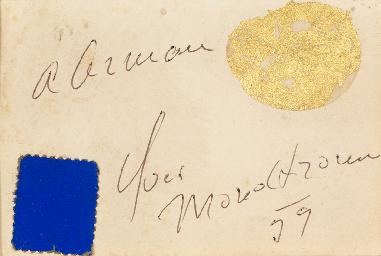 à Arman
Yves
Monochrome
59